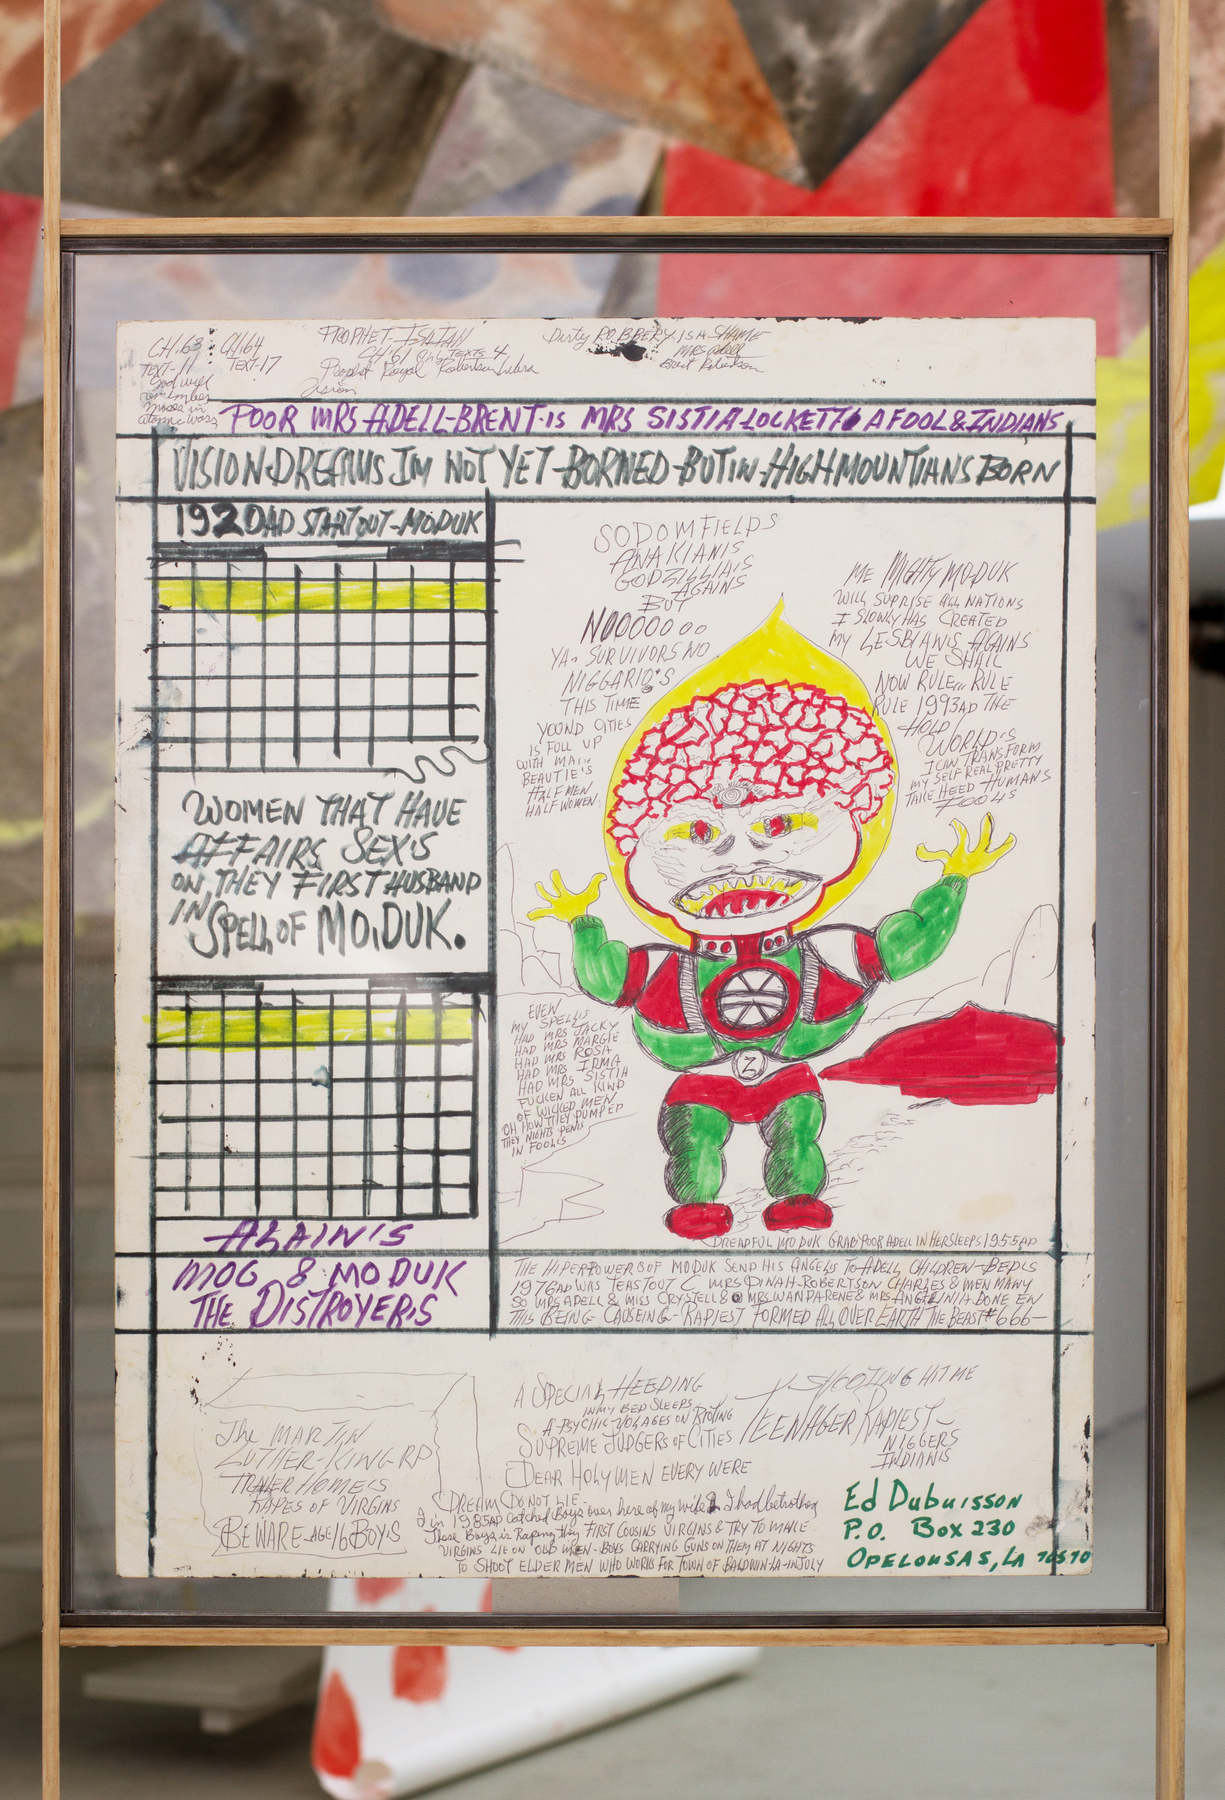 CH.63 CH64
TEXT-17 TEXT-17
God will
remember
moses in
atomic wars
PROPHET-ISAIAH
CH 61 TEXTS 4
Prophet Royal Robertson
Vision
Dirty ROBBERY IS A SHAME
MRS Adell
Brent Robertson
POOR MRS ADELL-BRENT-IS MRS SISTIA-LOCKETT A FOOL & INDIANS
VISION-DREAMS IM NOT YET-BORNED-BUT IN-HIGH MOUNTIANS BORN
192DAD START OUT-MODUK
WOMEN THAT HAVE
AFFAIRS SEX'S
ON, THEY FIRST HUSBAND
IN SPELL OF MO.DUK.
ALAIN'S
MOG & MODUK
THE DISTROYER'S
SODOM FIELDS
ANAKIANIS
GODZILLIA'S
AGAINS
BUT
NOOOOOO
YA. SURVIVORS NO
NIGGARIO'S
THIS TIME
YOOND CITIES
IS FULL UP
WITH MAI..
BEAUTIE'S
HALF MEN
HALF WOMEN.
ME MIGHTY MODUK
WILL SUPRISE ALL NATIONS
I SLOWLY HAS CREATED
MY LESBIANS AGAINS
WE SHALL
NOW RULE... RULE
RULE 1993AD THE
HOLD
WORLD'S
I CAN TRANSFORM
MY SELF REAL PRETTY
TAKE HEED HUMANS
FOOLS
Z
EVEN
MY SPELL'S
HAD MRS JACKY
HAD MRS MARGIE
HAD MRS ROSA
HAD MRS IRMA
HAD MRS SISTIA
FUCKEN ALL KIND
OF WICKED MEN
OH HOW THEY PUMPED
THEY NIGHTS PENIS
IN FOOLIS
DREADFUL MODUK GRAB POOR ADELL IN HER SLEEPS 1955AD
THE HIPERPOWERS OF MODUK SEND HIS ANGELS TO ADELL CHILDREN-BEDLS
1976AD WAS TEASTOUT C MRS DINAH-ROBERTSON CHARLES & MEN MANY
SO MRS ADELL & MISS CRYSTELL & MRS WANDA RENE & MRS ANGELINIA DONE EN
THIS BEING-CAUSEING-RAPIEST FORMED ALL OVER EARTH THE BEAST #666-
The MARTIN
LUTHER-KING-RP
TRALER HOME'S
RAPES OF VIRGINS
BEWARE-AGE 16 BOYS
A SPECIAL HEEDING
IN MY BED SLEEPS
A-PSYCHIC VOLAGES ON RIOTING
SUPREME JUDGERS OF CITIES
DEAR HOLY MEN EVERY WERE
SHOOTING HIT ME
TEENAGER RAPIEST-
NIGGERS
INDIANIS
DREAM DO NOT LIE-
I in 1985AD Catched Boys over here of my wife I had betrothen
These Boys is Raping they FIRST COUSINS VIRGINS & TRY TO MAKE
VIRGINS LIE ON OLD MEN-BOYS CARRYING GUNS ON THEM AT NIGHTS
TO SHOOT ELDER MEN WHO WORKS FOR TOWN OF BALDWIN-LA-IN JULY
Ed Dubuisson
P.O. Box 230
OPELOUSAS, LA 70570